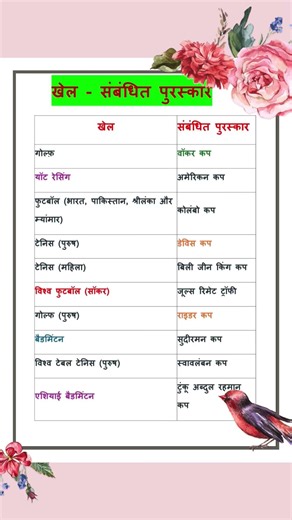 खेल - संबंधित पुरस्कार
खेल संबंधित पुरस्कार
गोल्फ़ वॉकर कप
यॉट रेसिंग अमेरिकन कप
फुटबॉल (भारत, पाकिस्तान, श्रीलंका और म्यांमार) कोलंबो कप
टेनिस (पुरुष) डेविस कप
टेनिस (महिला) बिली जीन किंग कप
विश्व फुटबॉल (सॉकर) जूल्स रिमेट ट्रॉफी
गोल्फ (पुरुष) राइडर कप
बैडमिंटन सुदीरमन कप
विश्व टेबल टेनिस (पुरुष) स्वावलंबन कप
एशियाई बैडमिंटन टुंकू अब्दुल रहमान कप